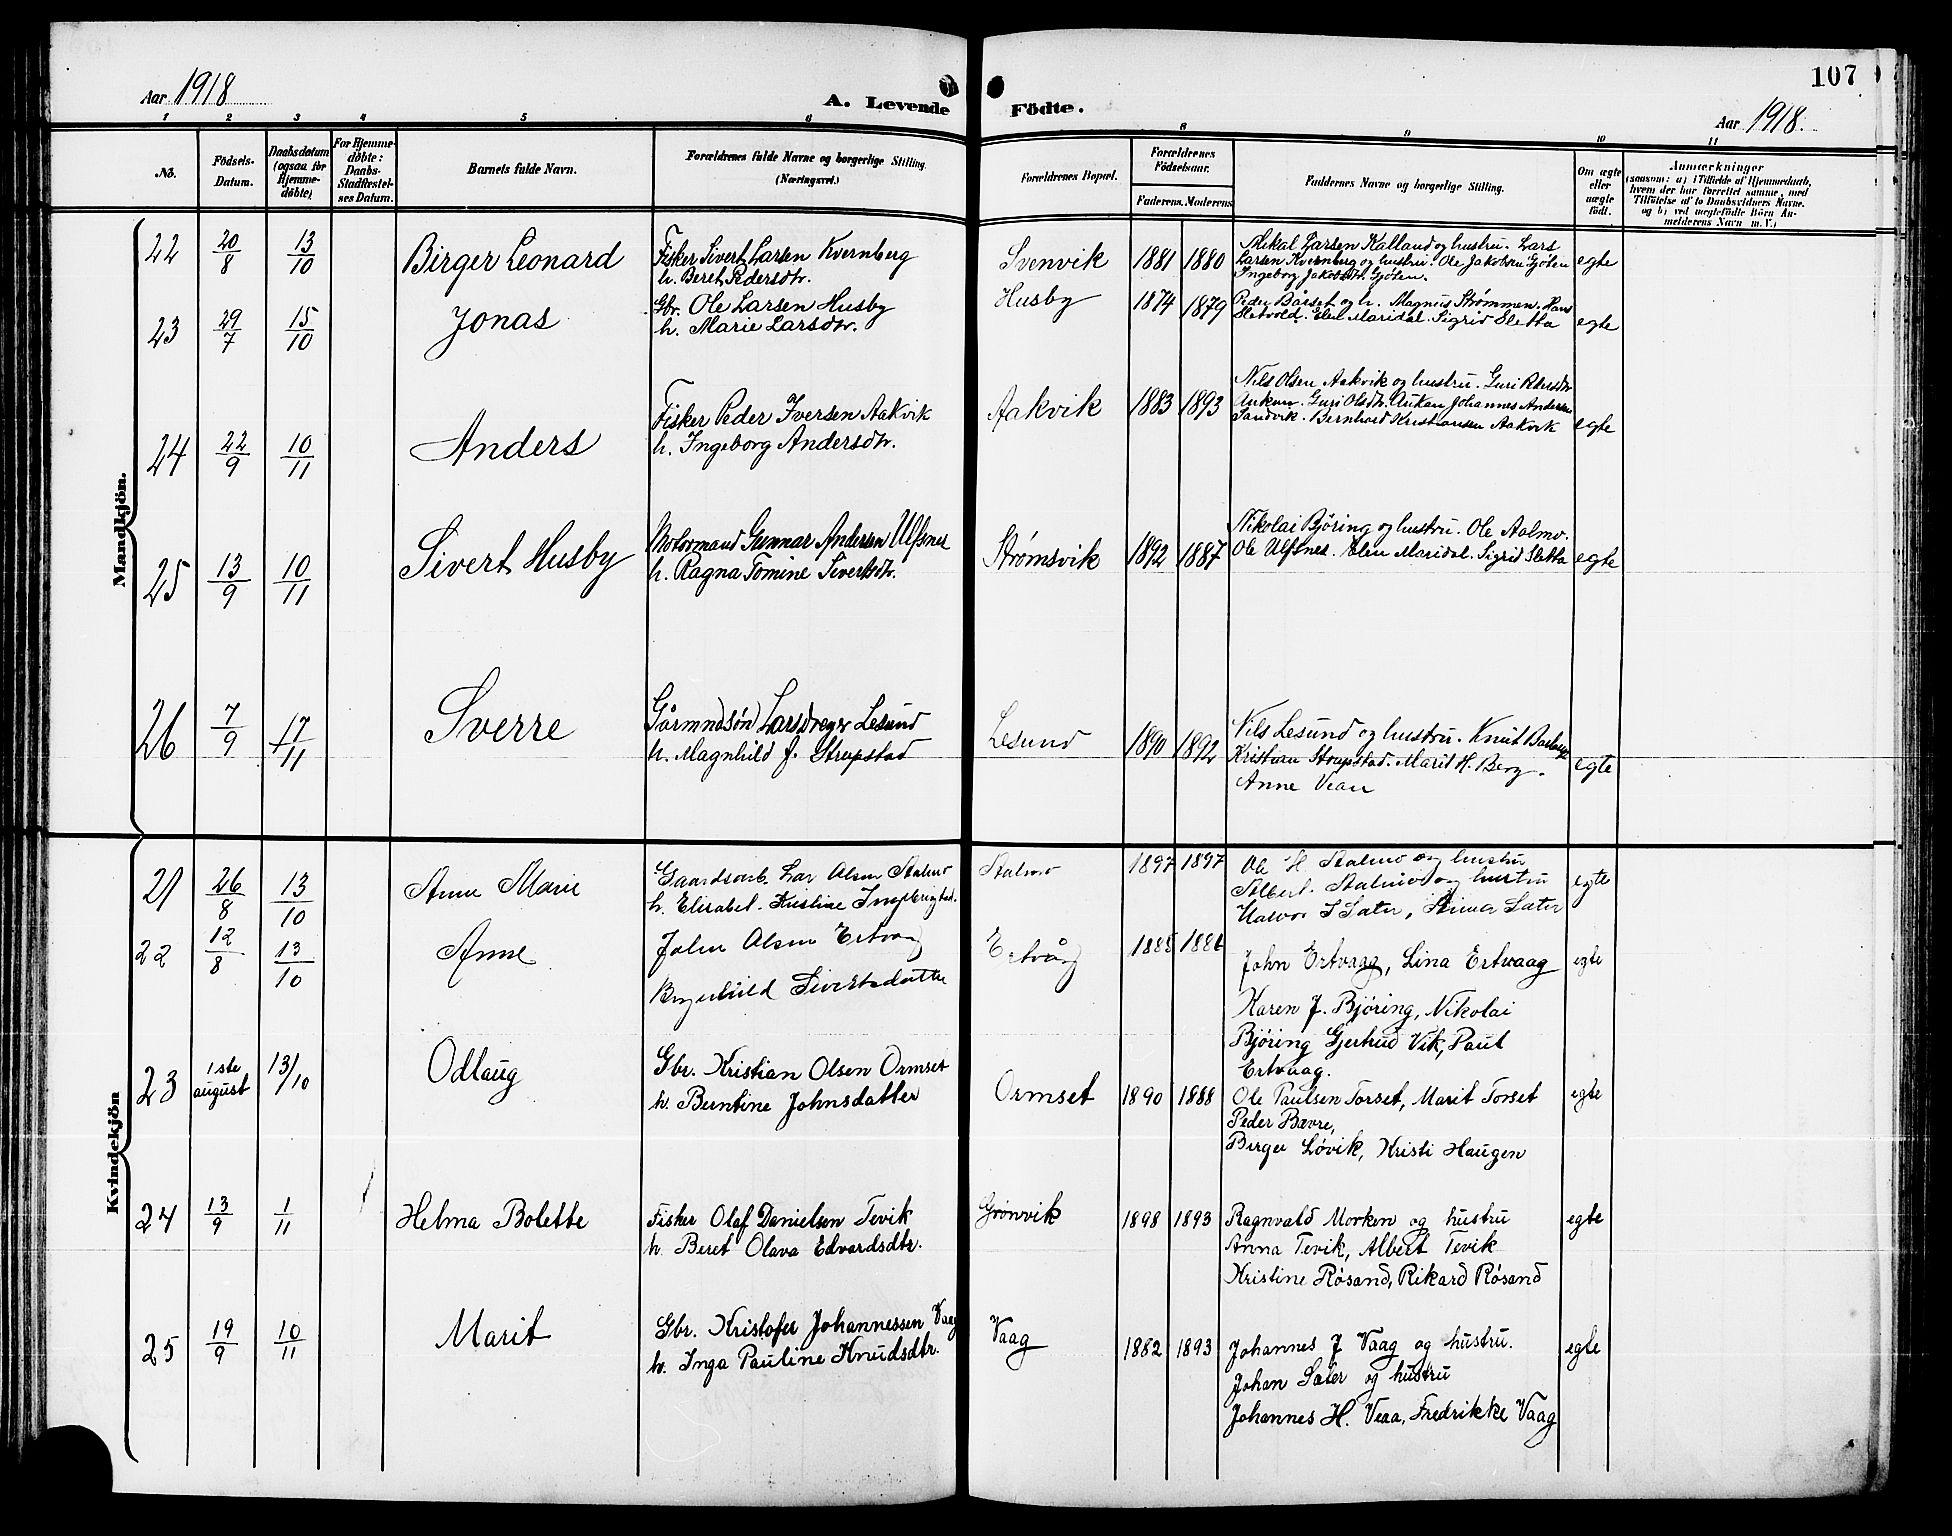 107
Aar 1918
A. Levende Födte.
Aar 1918.
1 2 3 4 5 6 8 9 10 11
No.
Fødsels-
Datum.
Daabsdatum
(ogsaa for
Hjemme-
døbte).
For Hjemme-
døbte:
Daabs-
Stadfæstel-
ses Datum.
Barnets fulde Navn.
Forældrenes fulde Navne og borgerlige Stilling.
(Næringsvei.)
Forældrenes Bopæl.
Forældrenes
Fødselsaar.
Faderens. Moderens
Faddernes Navne og borgerlige Stilling.
Om ægte
eller
uægte
født.
Anmærkninger
(saasom: a) i Tilfælde af Hjemmedaab,
hvem der har forrettet samme, med
Tilføielse af to Daabsvidners Navne.
og b) ved uægtefødte Börn An-
melderens Navn m. V.)
Mandkjön.
22 20/8 13/10 Birger Leonard
Fisker Sivert Larsen Kvernberg
h. Beret Pedersdtr.
Svenvik 1881 1880
Mikal Larsen Kalland og hustru. Lars
Larsen Kvernberg og hustru. Ole Jakobsen Gjøten
Ingeborg Jakobsdtr. Gjøten.
egte
23 29/7 15/10 Jonas
Gbr. Ole Larsen Husby
h. Marie Larsdtr.
Husby 1874 1879
Peder Bårset og h. Magnus Strømmen. Hans
Sletvold. Elen Maridal. Sigrid Sletta
egte
24 22/9 10/11 Anders
Fisker Peder Iversen Aakvik
h. Ingeborg Andersdtr.
Aakvik 1883 1893
Nils Olsen Aakvik og hustru. Guri Pedersdtr
Aukan. Guri Olsdtr. Aukan Johannes Andersen
Sandvik. Bernhard Kristiansen Aakvik
egte
25 13/9 10/11 Sivert Husby
Motormand Gunnar Andersen Ulfsnes
h. Ragna Tomine Sivertsdtr.
Strømsvik 1892 1887
Nikolai Bjøring og hustru. Ole Aalmo.
Ole Ulfsnes. Elen Maridal. Sigrid Sletta
egte
26 7/9 17/11 Sverre
Lesund
h. Magnhild J. Strupstad
Lesund 1890 1892
Nils Lesund og hustru. Knut
Kristian Strupstad. Marit H. Berg.
Anne Vean
egte
Kvindekjön
21 26/8 13/10 Anne Marie
Gaardsarb. Lar Olsen Stalmo
h. Elisabet. Kristine
Stalmo 1897 1897
Ole H Stalmo og hustru
Albert. Stalmo og hustru
Halvor I Sæter, Sæter
egte
22 12/8 13/10 Anne
John Olsen Ertvaag
Sivertsdatter
Ertvåg 1885 1886
John Ertvaag, Lina Ertvaag
Karen J. Bjøring, Nikolai
Bjøring Gjertrud Vik, Paul
Ertvaag.
egte
23 1ste august 13/10 Odlaug
Gbr. Kristian Olsen Ormset
h. Berntine Johnsdatter
Ormset 1890 1888
Ole Paulsen Torset, Marit Torset
Peder Bævre,
Birger Løvik, Kristi Haugen
egte
24 13/9 1/11 Helma Bolette
Fisker Olaf Danielsen Tevik
h. Beret Olava Edvardsdtr.
Grønvik 1898 1893
Ragnvald Morken og hustru
Anna Tevik, Albert Tevik
Kristine Røsand, Rikard Røsand
egte
25 19/9 10/11 Marit
Gbr. Kristofer Johannessen Vaag
h. Inga Pauline Knudsdtr.
Vaag 1882 1893
Johannes J Vaag og hustru.
Johan Sæter og hustru
Johannes H. Veaa, Fredrikke Vaag
egte